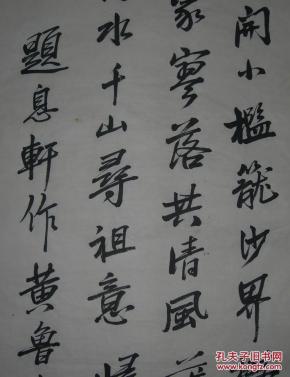 開小檻籠沙界
家寥落共清風
水千山尋祖意
題息軒作黄魯
孔夫子旧书网